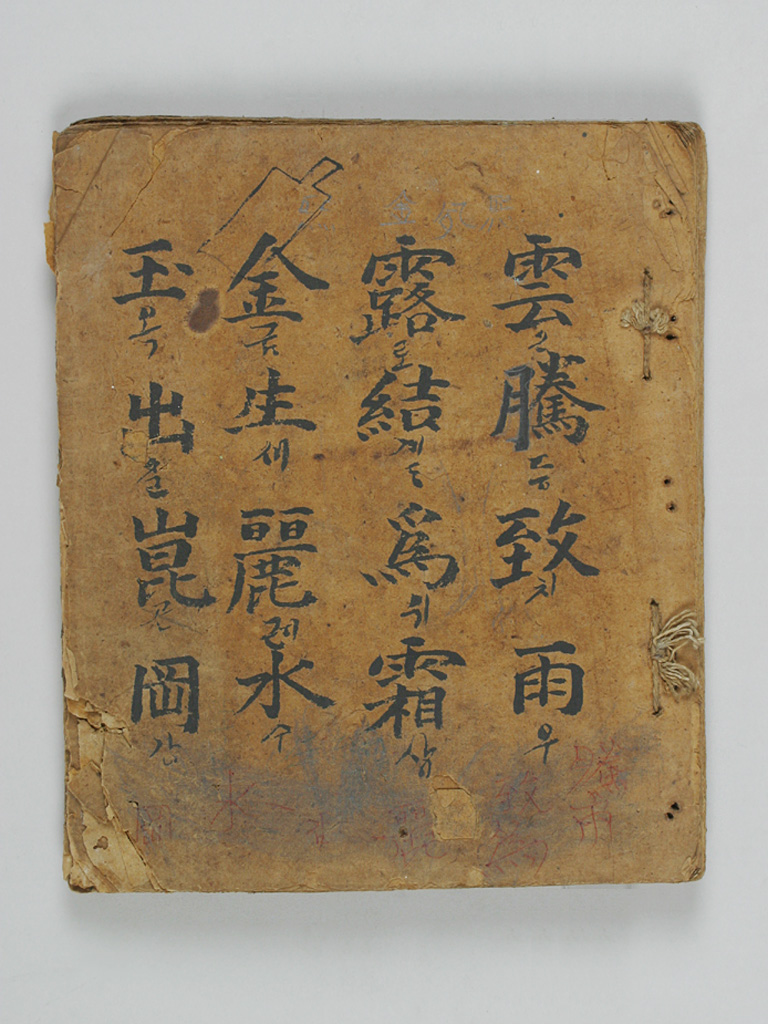 雲騰등致치雨우
露로結爲위霜상
金금生새麗례水수
玉옥出출崑곤岡강